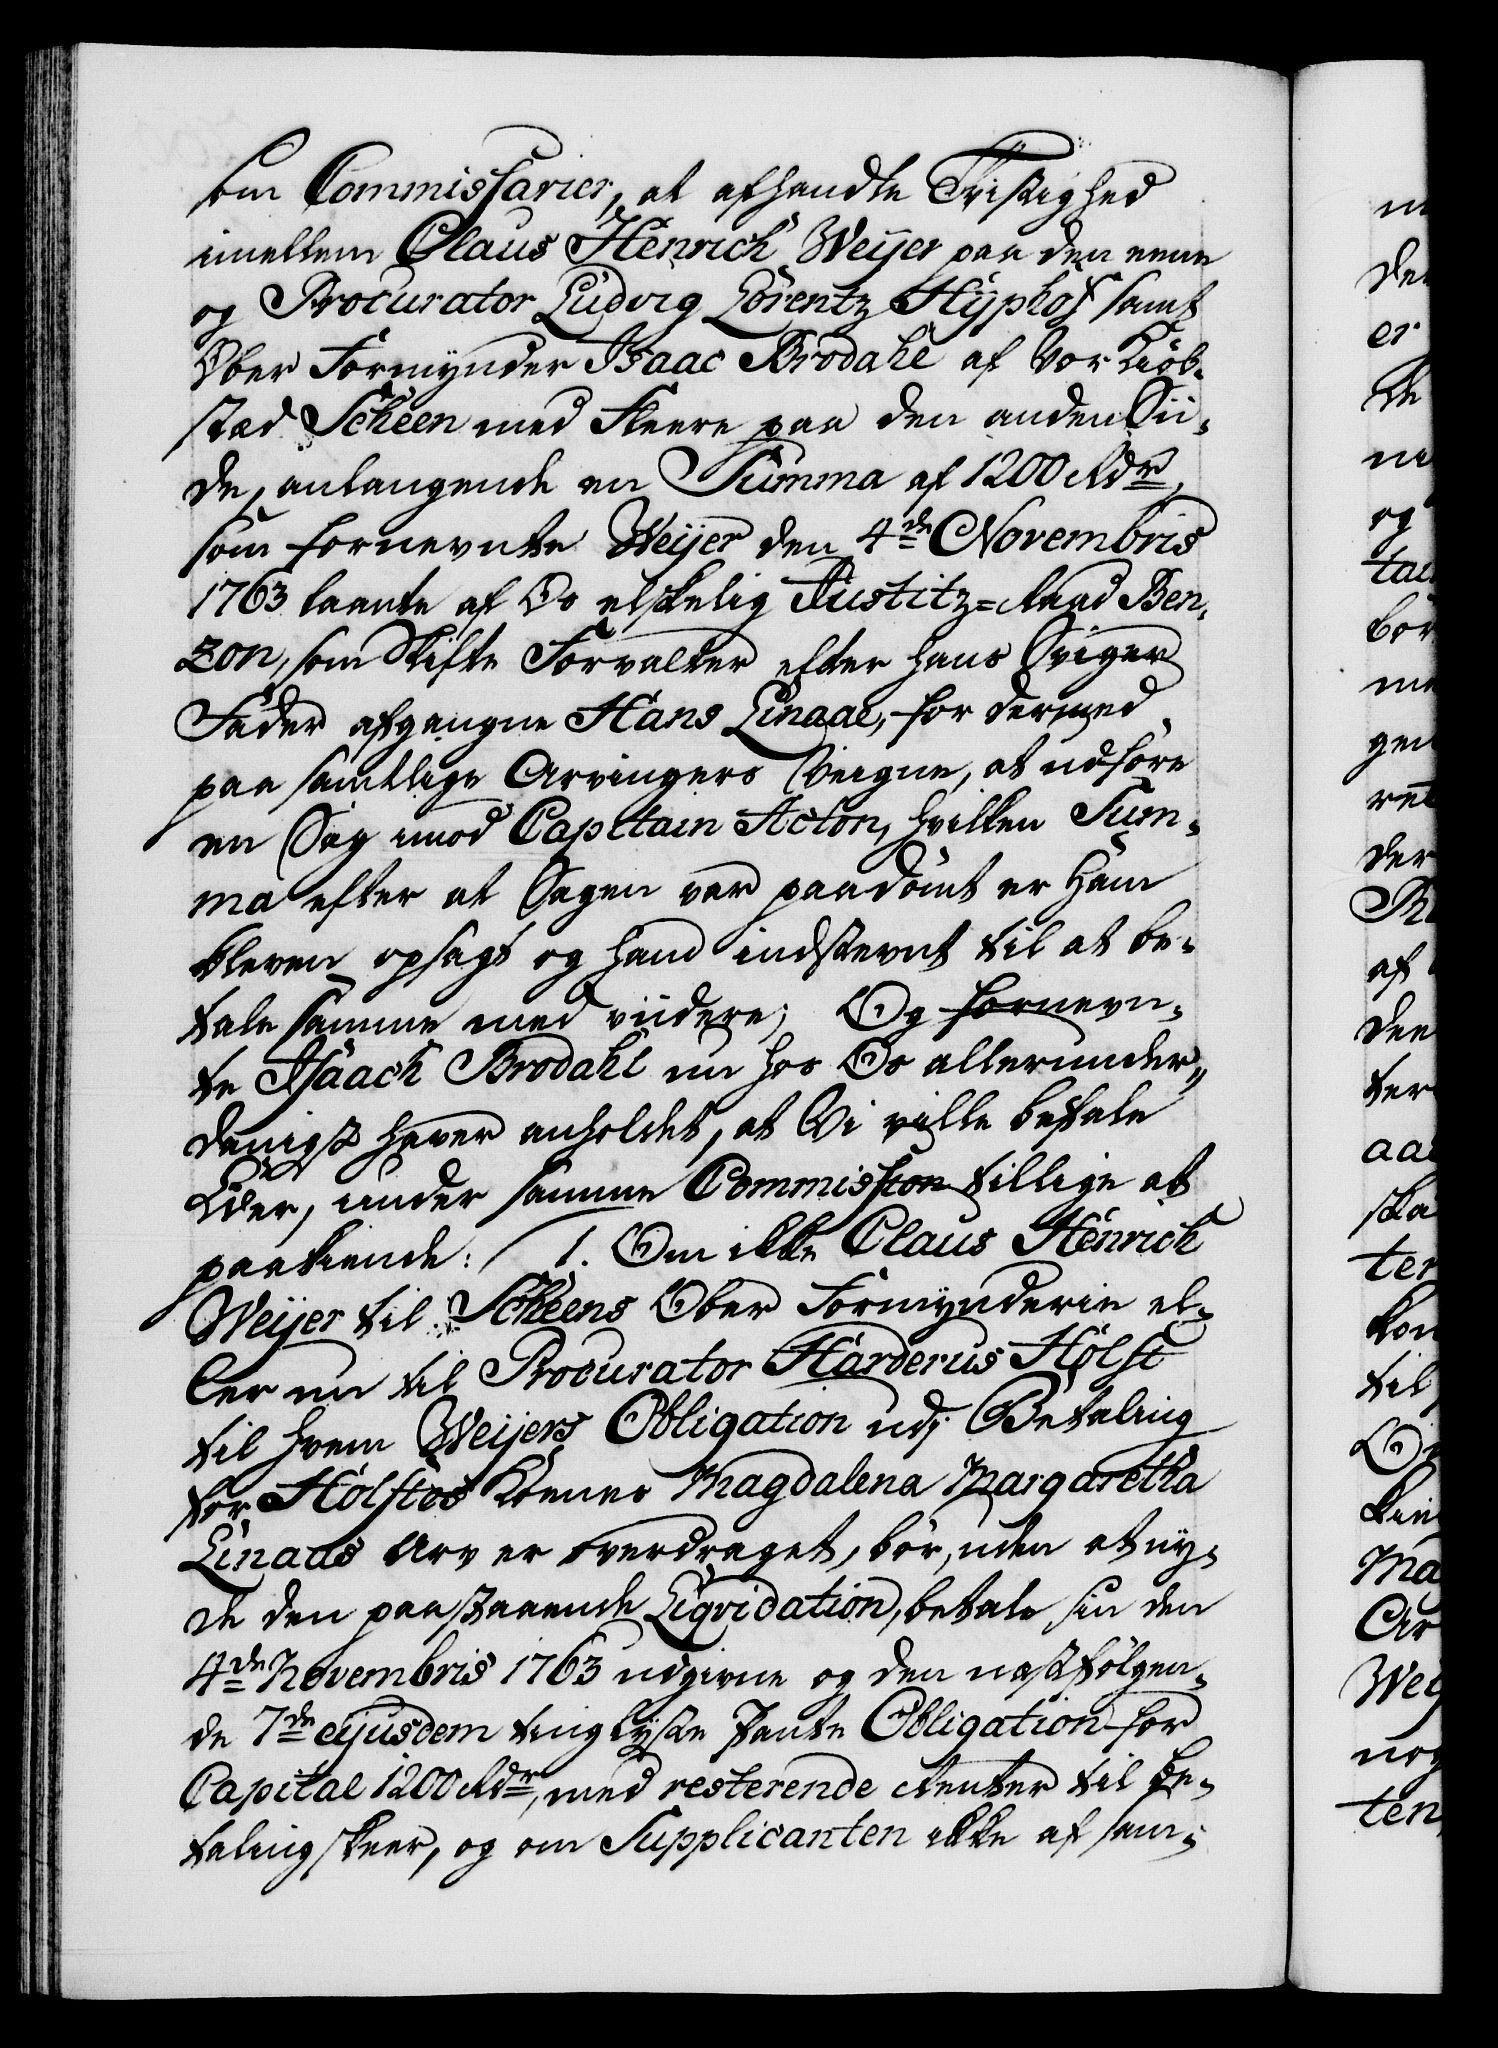 som Commissarier, at afhandle Tvistighed
imellem Claus Henrich Weijer paa den eene
og Procurator Ludvig Lorentz Hyphof samt
Ober Formynder Isaac Brodahl af Vor Kiöb-
stæd Scheen med Fleere paa den anden Sii-
de, anlangende en Summa af 1200 Rdr,
som fornevnte Weijer den 4de Novembris
1763 laante af Os elskelig Justitz-Raad Ben-
zon, som Skifte Forvalter efter hans Sviger
Fader afgangne Hans Linaae, for dermed
paa samtlige Arvingers Veigne, at udføre
en Sag imod Capitain Acton, hvilken Sum-
ma efter at Sagen var paadömt er ham
bleven opsagt og hand indstevnt til at be-
tale samme med viidere; Og fornevn-
te Isaach Brodahl nu hos Os allerunder-
danigst haver anholdet, at Vi ville befale
Eder, under samme Commission tillige at
paakiende: 1. Om ikke Claus Henrich
Weijer til Scheens Ober Formynderie el-
ler nu til Procurator Harderus Holst
til hvem Weijers Obligation udi Betaling
for Holstes Kones Magdalena Margaretha
Linaaes Arv er overdraget, bör, uden at ny-
de den paastaaende Liqvidation, betale sin den
4de Novembris 1763 udgivne og den næstfölgen-
de 7de ejusdem tinglyste Pante Obligation for
Capital 1200 Rdr, med resterende Renter til be-
taling skeer, og om Supplicanten ikke af sam-